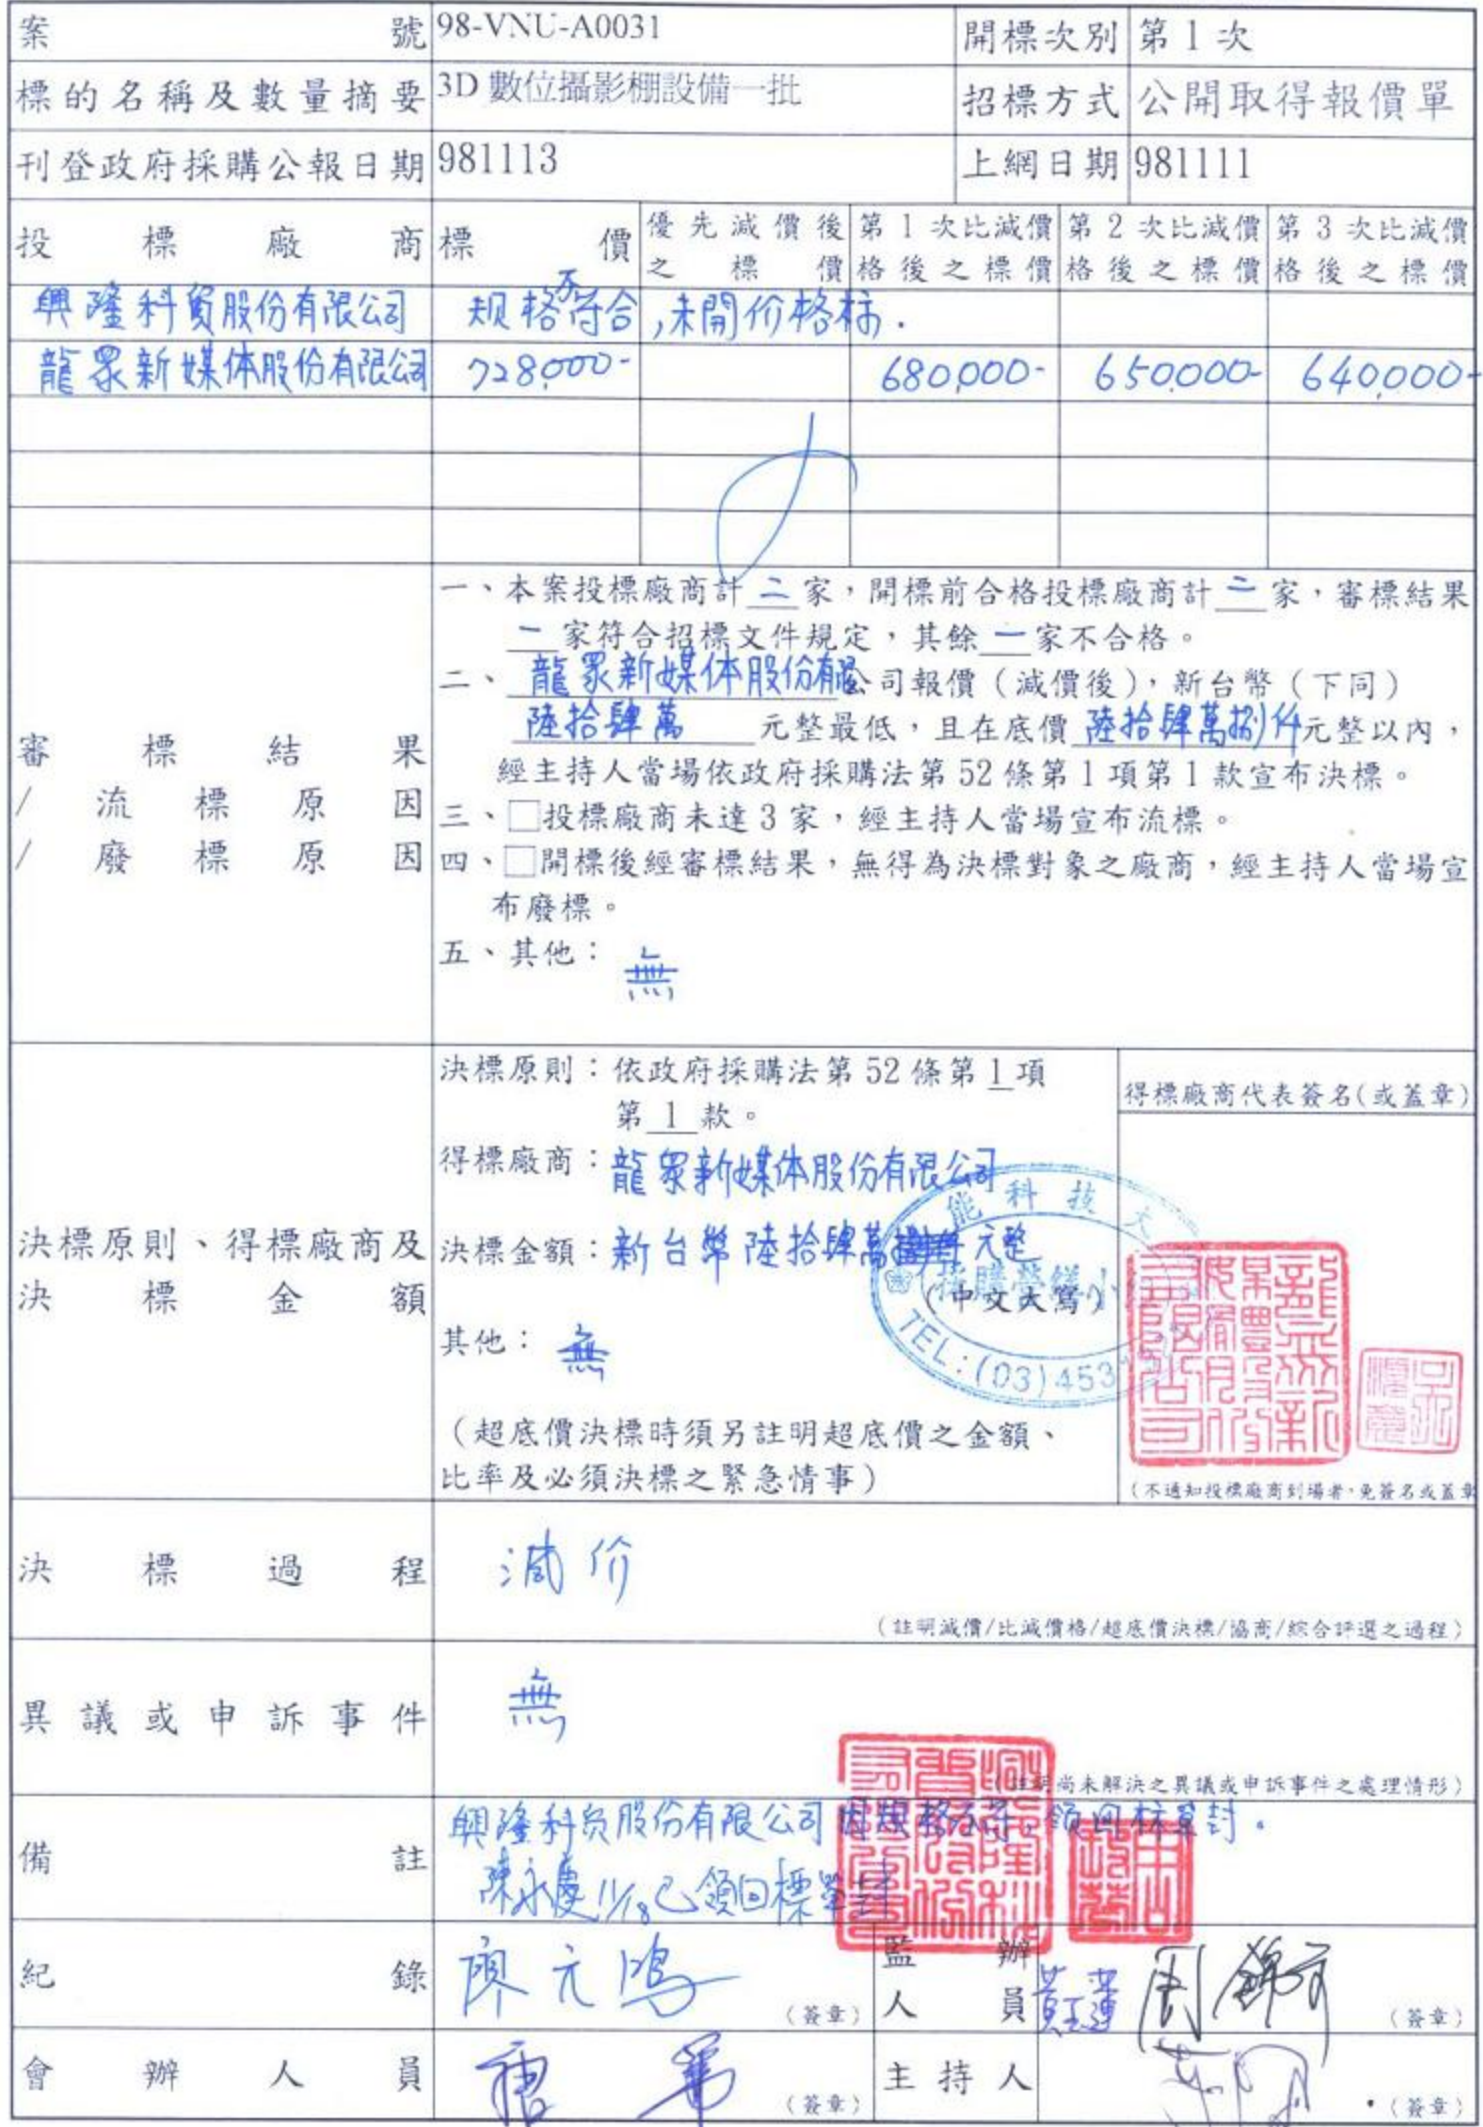 案號 98-VNU-A0031 開標次別 第 1 次
標的名稱及數量摘要 3D 數位攝影棚設備一批 招標方式 公開取得報價單
刊登政府採購公報日期 981113 上網日期 981111
投標廠商 標價 優先減價後之標價 第 1 次比減價格後之標價 第 2 次比減價格後之標價 第 3 次比減價格後之標價
興隆科貿股份有限公司 規格不符合,未開价格标.
龍眾新媒体股份有限公司 728,000- 680,000- 650,000- 640,000-
審標結果
/流標原因
/廢標原因
一、本案投標廠商計 二 家，開標前合格投標廠商計 二 家，審標結果
一 家符合招標文件規定，其餘 一 家不合格。
二、龍眾新媒体股份有限公司報價（減價後），新台幣（下同）
陸拾肆萬 元整最低，且在底價 陸拾肆萬捌仟元整以內，
經主持人當場依政府採購法第 52 條第 1 項第 1 款宣布決標。
三、□投標廠商未達 3 家，經主持人當場宣布流標。
四、□開標後經審標結果，無得為決標對象之廠商，經主持人當場宣
布廢標。
五、其他：無
決標原則、得標廠商及
決標金額
決標原則：依政府採購法第 52 條第 1 項
第 1 款。
得標廠商：龍眾新媒体股份有限公司
決標金額：新台幣陸拾肆萬元整
（中文大寫）
其他：無
（超底價決標時須另註明超底價之金額、
比率及必須決標之緊急情事）
得標廠商代表簽名(或蓋章)
能科技大
採購營繕小
TEL:(03)453
（不通知投標廠商到場者，免簽名或蓋章
決標過程 減价
（註明減價/比減價格/超底價決標/協商/綜合評選之過程）
異議或申訴事件 無
（註明尚未解決之異議或申訴事件之處理情形）
備註 興隆科貿股份有限公司因規格不符,領回标單封。
陳永慶 11/18 已領回標單封
紀錄 廖元鴻 （簽章） 監辦人員 黃玉蓮 周 （簽章）
會辦人員 （簽章） 主持人 （簽章）